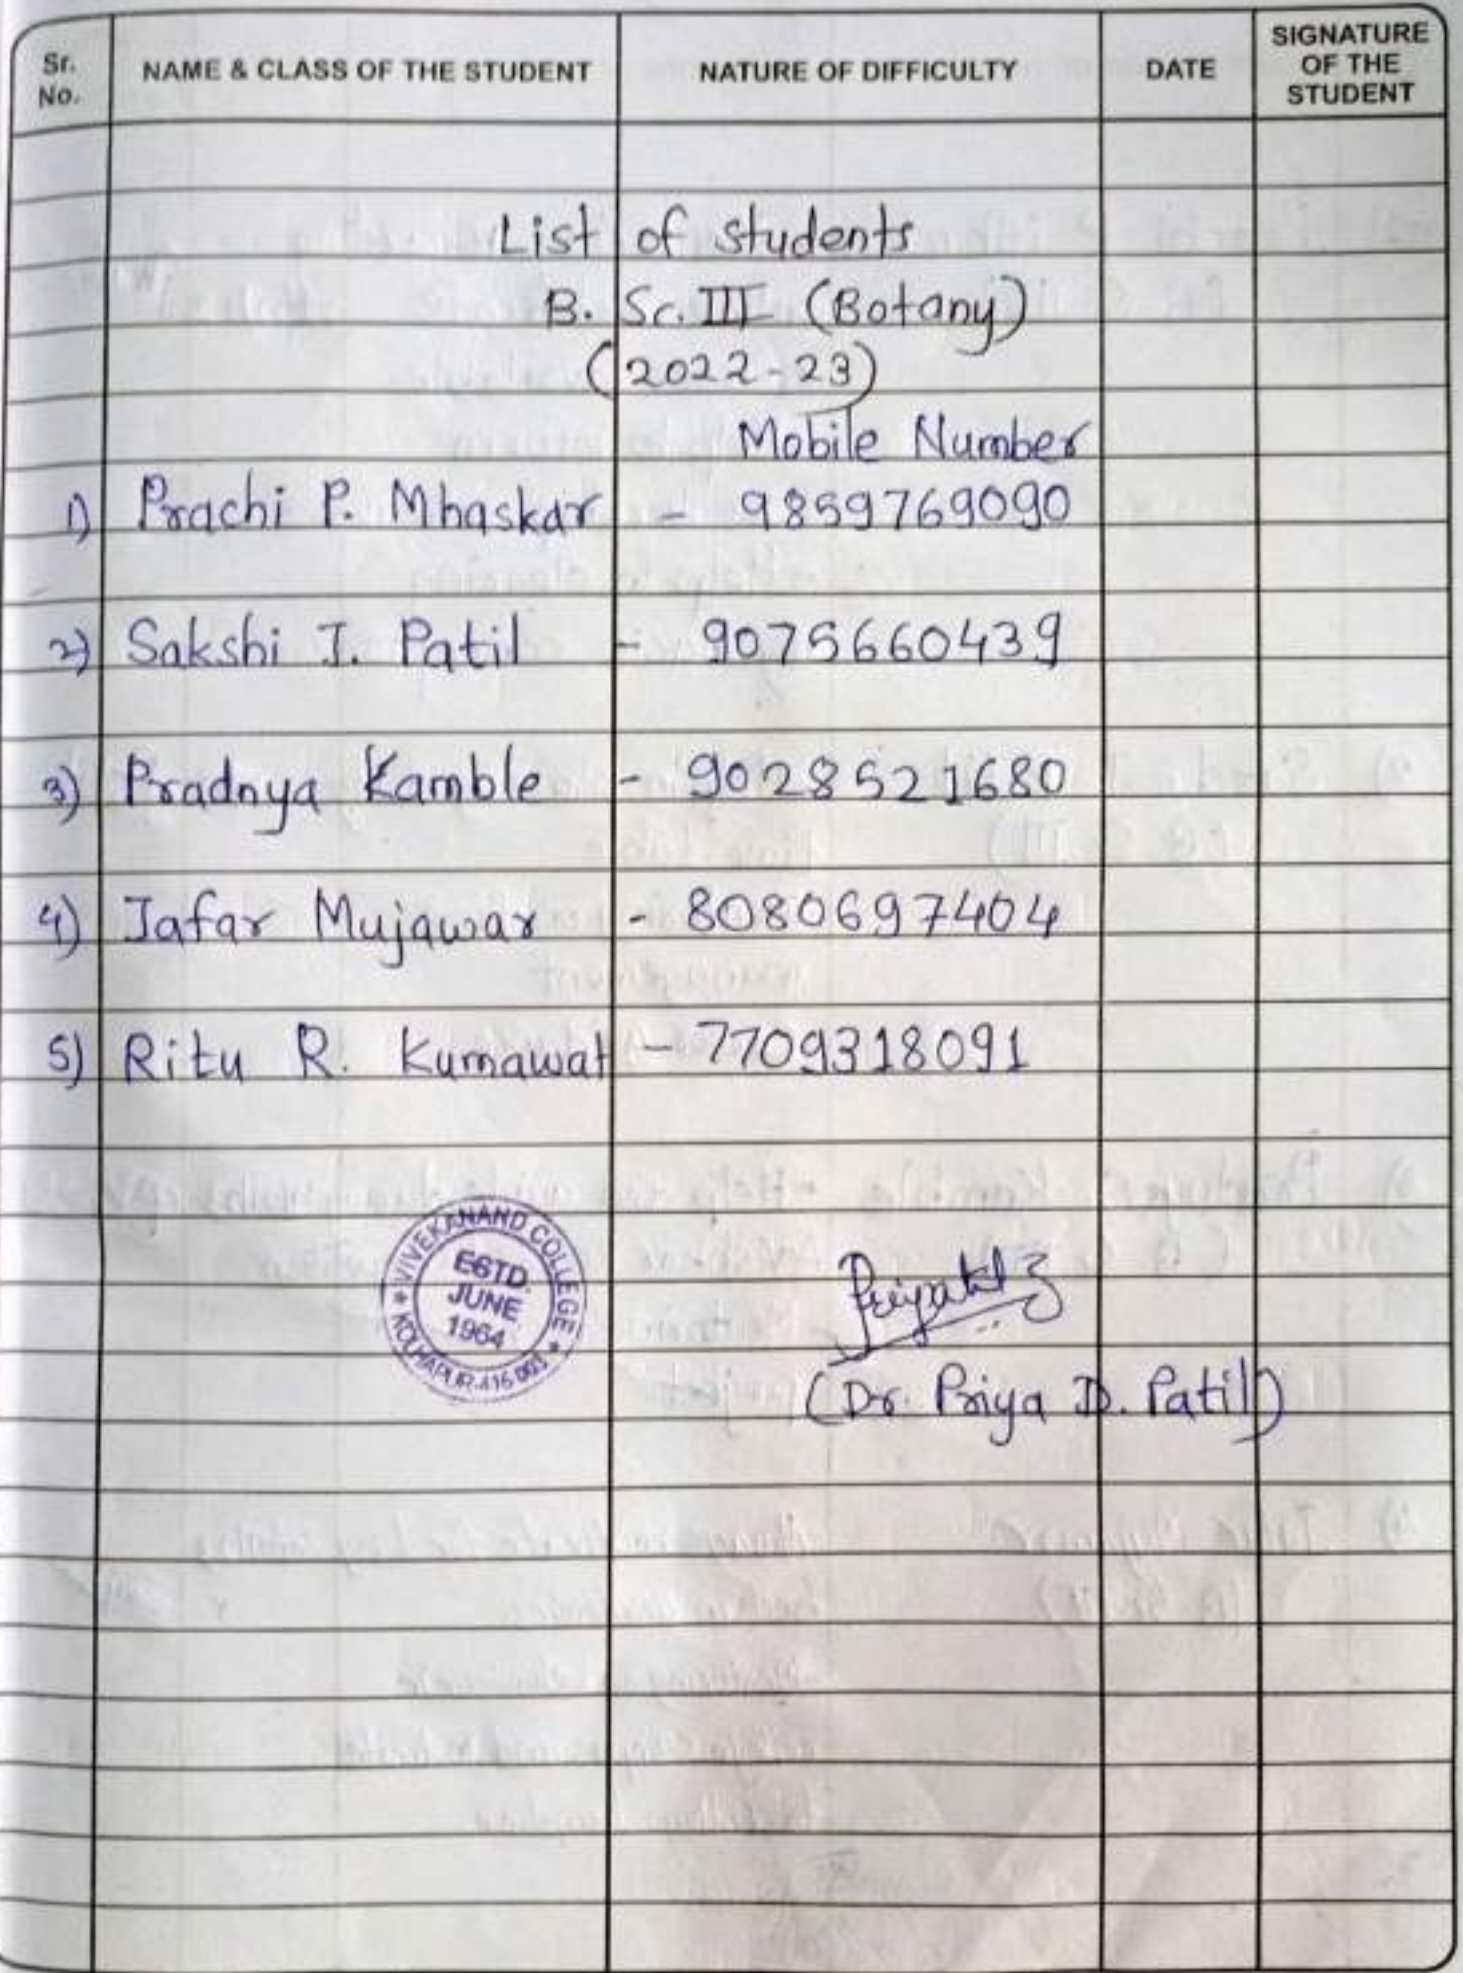 Sr. No.
NAME & CLASS OF THE STUDENT
NATURE OF DIFFICULTY
DATE
SIGNATURE OF THE STUDENT
List of students
B. Sc. III (Botany)
(2022-23)
Mobile Number
1) Prachi P. Mhaskar - 9859769090
2) Sakshi J. Patil - 9075660439
3) Pradnya Kamble - 9028521680
4) Jafar Mujawar - 8080697404
5) Ritu R. Kumawat - 7709318091
VIVEKANAND COLLEGE
ESTD.
JUNE
1964
KOLHAPUR-416 003
(Dr. Priya D. Patil)